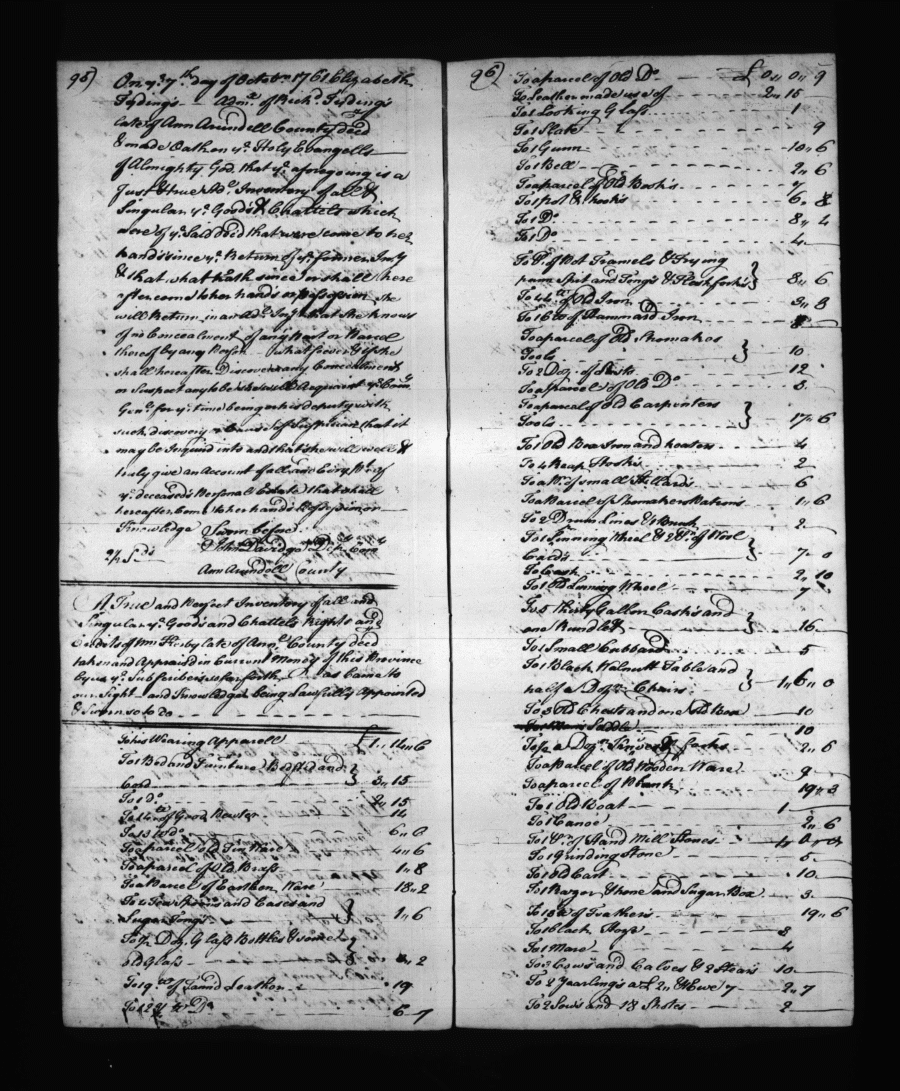 95)
On ye 7th day of Octobr 1761 Elizabeth
Tyding's Admx of Richd Tyding's
late of Ann Arundell County decd
& made Oath on ye Holy Evangells
of Almighty God, that ye aforegoing is a
Just & true Add Inventory of all &
Singular ye Goods & Chattels which
were of ye Said decd that were come to her
hands since ye Return of ye former Invy
& that what hath since or shall here
after come to her hands or possession she
will Return in an Addl Invy that she knows
of no Concealment of any Part or Parcel
thereof by any Person Whatsoever & if she
shall hereafter Discover any Concealment
or Suspect any to be she will Acquaint ye Comy
Genl for ye time being or his deputy with
such discovery & Cause of Suspicion that it
may be Inquired into and that she will well &
truly give an Account of all and Every Pt of
ye deceased's Personal Estate that shall
hereafter Come to her hands Possession or
Knowledge Sworn before
John Davidge Dep Com
Ann Arundell County
A True and Perfect Inventory of all and
Singular ye Goods and Chattels Rights and
Credits of Wm Kerby late of Annl County decd
taken and Appraisd in Current Money of this Province
by us ye Subscribers so far forth as Came to
our Sight and Knowledge being Lawfully Appointed
& Sworn so to do
To his Wearing Apparell £1,, 14,, 6
To 1 Bed and Furniture Bedsted and }
Cord } 3,, 15
To 1 Do 4,, 15
of Good Pewter 14
To 13 lb Do 6,, 6
To a parcel Old Tin Ware 4,, 6
To a parcel of Old Brass 1,, 8
To a Parcel of Earthen Ware 18,, 2
To 4 Tea Spoons and Cases and }
Sugar Tongs } 1,, 6
To ½ Doz. Glass Bottles & some }
old Glass 2
To 19 lb of Tann'd Leather 19
Do 6,, 7
96)
To a parcel of Old Do £ 0,, 0,, 9
To Leather made use of 2,, 15
To 1 Looking Glass 1
To 1 Slate 9
To 1 Gunn 10,, 6
To 1 Bell 2,, 6
To a parcel of Old Book's 7
To 1 pot & hook's 6,, 8
To 1 Do 8,, 4
To 1 Do 4
To Pr of Pot Tramels & Frying }
pann Spit and Tong's & Fleshfork's } 8,, 6
To 44 lb of Old Iron 3,, 8
To 16 lb of Hammard Iron 8
To a parcel of Old Shomakes }
Tools } 10
To 2 Doz. of Last's 12
To a parcel of Old Do 8
To a parcel of Old Carpenters }
Tools } 17,, 6
To 1 Old Box Iron and heaters 4
To 4 Reap Hook's 2
To a Pr of small Stillard's 6
To a Parcel of Shomakers 1,, 6
To 2 Drum Lines & 1 Brush 2
To 1 Spinning Wheel & 2 Pr of Wool }
Card's } 7,, 0
To Cash 2,, 10
To 1 Old Linning Wheel 7
To 5 thirty Gallon Cask's and }
one Rundlet } 16
To 1 Small Cubbard 5
To 1 Black Wallnutt Table and }
half a Dozn Chairs } 1,, 6,, 0
To 3 Old Chests and one Old Box 10
Saddle 10
To ½ a Dozn Knives & forks 2,, 6
To a parcel of Old Wooden Ware 9
To a parcel of Plank 19,, 3
To 1 Old Boat 1
To 1 Canoe 2,, 6
To 1 Pr of Hand Mill Stones
To 1 Grinding Stone 5
To 1 Old Cart 10
To 1 Razor & hone and Sugar Box 3
To 18 lb of Feathers 19,, 6
To 1 black Horse 8
To 1 Mare 4
To 3 Cows and Calves & 2 Steers 10
To 2 Yearling's at £2,, & 1 Ewe 7 2,, 7
To 2 Sows and 18 Shotes 2